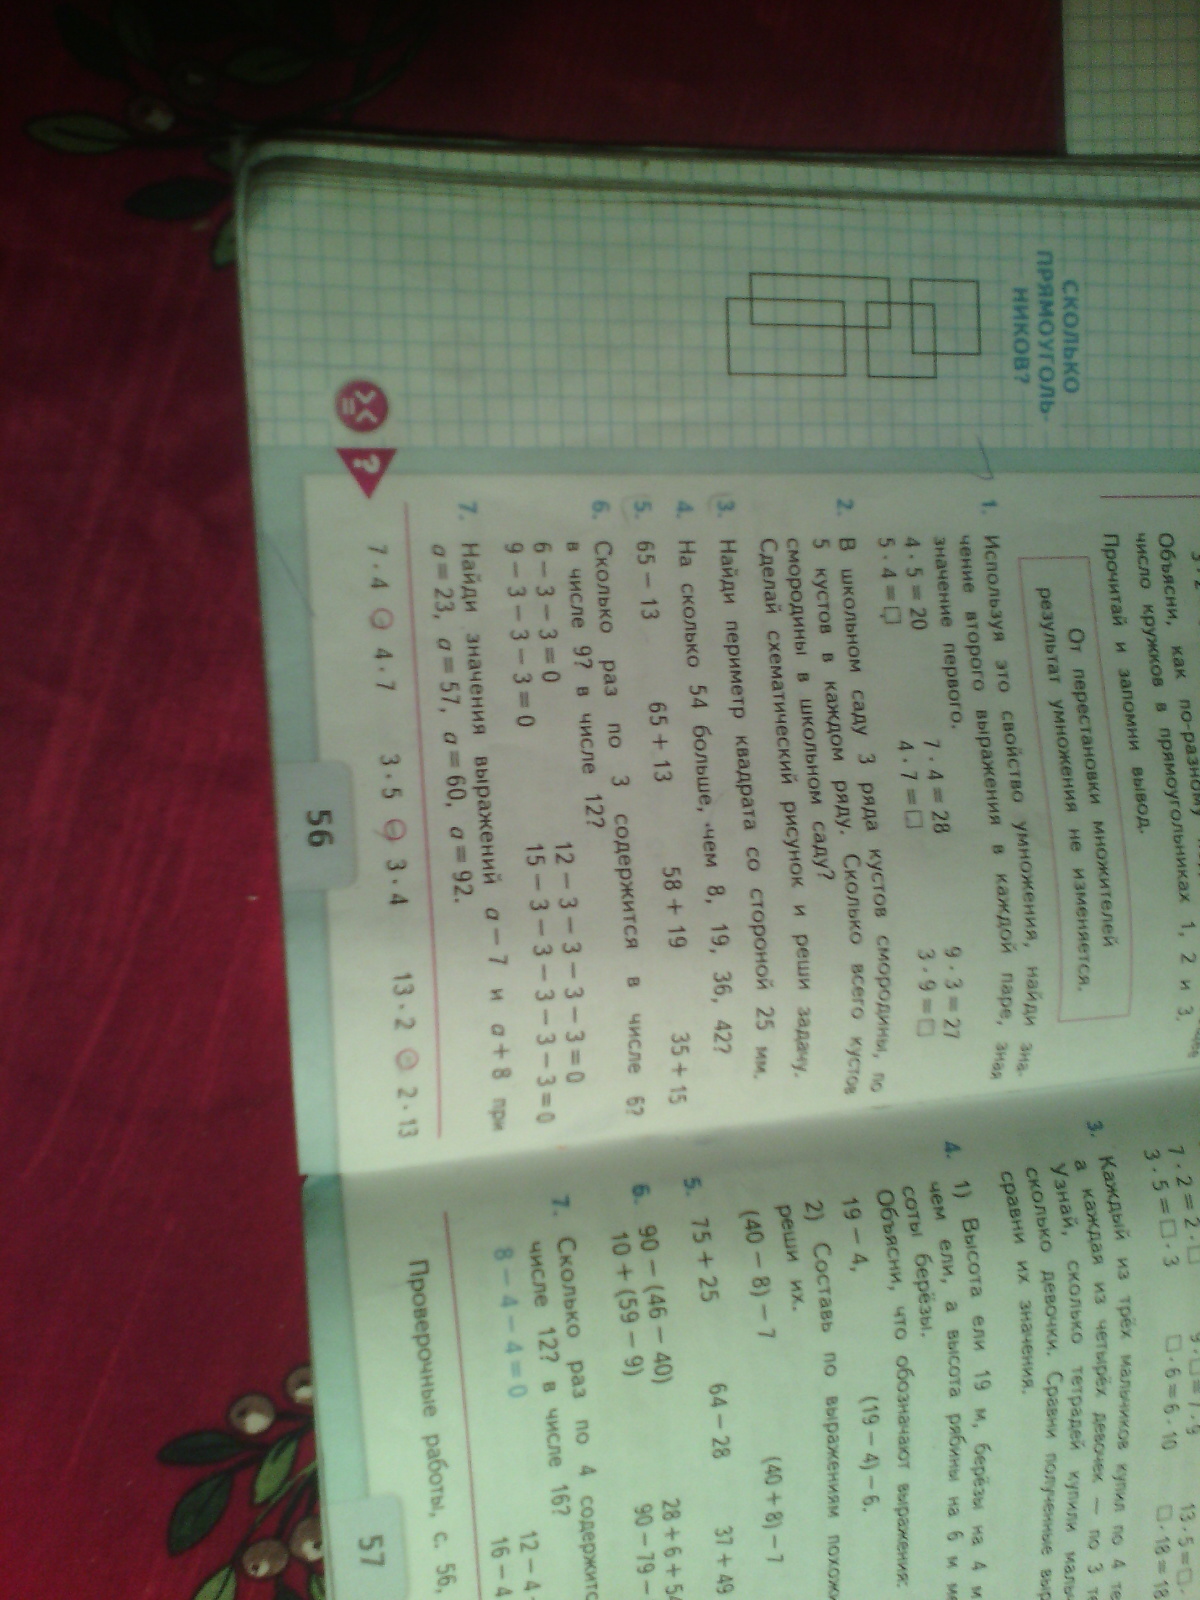 СКОЛЬКО
ПРЯМОУГОЛЬ-
НИКОВ?
Объясни, как по-разному
число кружков в прямоугольниках 1, 2 и 3.
Прочитай и запомни вывод.
От перестановки множителей
результат умножения не изменяется.
1. Используя это свойство умножения, найди зна-
чение второго выражения в каждой паре, зная
значение первого.
4 · 5 = 20 7 · 4 = 28 9 · 3 = 27
5 · 4 = □ 4 · 7 = □ 3 · 9 = □
2. В школьном саду 3 ряда кустов смородины, по
5 кустов в каждом ряду. Сколько всего кустов
смородины в школьном саду?
Сделай схематический рисунок и реши задачу.
3. Найди периметр квадрата со стороной 25 мм.
4. На сколько 54 больше, чем 8, 19, 36, 42?
5. 65 − 13 65 + 13 58 + 19 35 + 15
6. Сколько раз по 3 содержится в числе 6?
в числе 9? в числе 12?
6 − 3 − 3 = 0 12 − 3 − 3 − 3 − 3 = 0
9 − 3 − 3 − 3 = 0 15 − 3 − 3 − 3 − 3 − 3 = 0
7. Найди значения выражений a − 7 и a + 8 при
a = 23, a = 57, a = 60, a = 92.
>< = ? 7 · 4 ○ 4 · 7 3 · 5 ○ 3 · 4 13 · 2 ○ 2 · 13
56
7 · 2 = 2 · □
3 · 5 = □ · 3 □ · 6 = 6 · 10 □ · 18 = 18
3. Каждый из трёх мальчиков купил по 4
а каждая из четырёх девочек — по 3
Узнай, сколько тетрадей купили
сколько девочки. Сравни полученные
сравни их значения.
4. 1) Высота ели 19 м, берёзы на 4 м
чем ели, а высота рябины на 6 м
соты берёзы.
Объясни, что обозначают выражения:
19 − 4, (19 − 4) − 6.
2) Составь по выражениям
реши их.
(40 − 8) − 7 (40 + 8) − 7
5. 75 + 25 64 − 28 37 + 49
6. 90 − (46 − 40) 28 + 6 + 54
10 + (59 − 9) 90 − 79 −
7. Сколько раз по 4
числе 12? в числе 16?
8 − 4 − 4 = 0 12 − 4
16 − 4
Проверочные работы, с. 56,
57